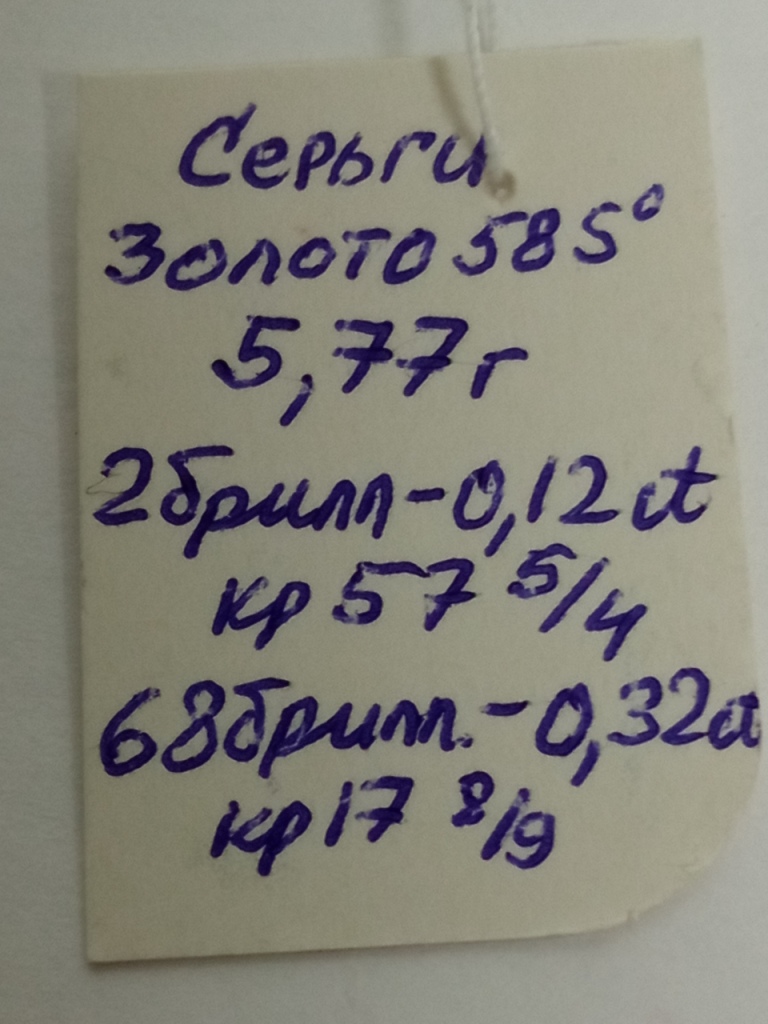 Серьги
Золото 585°
5,77 г
2 брилл – 0,12 ct
кр 57 5/4
68 брилл. – 0,32 ct
кр 17 8/9